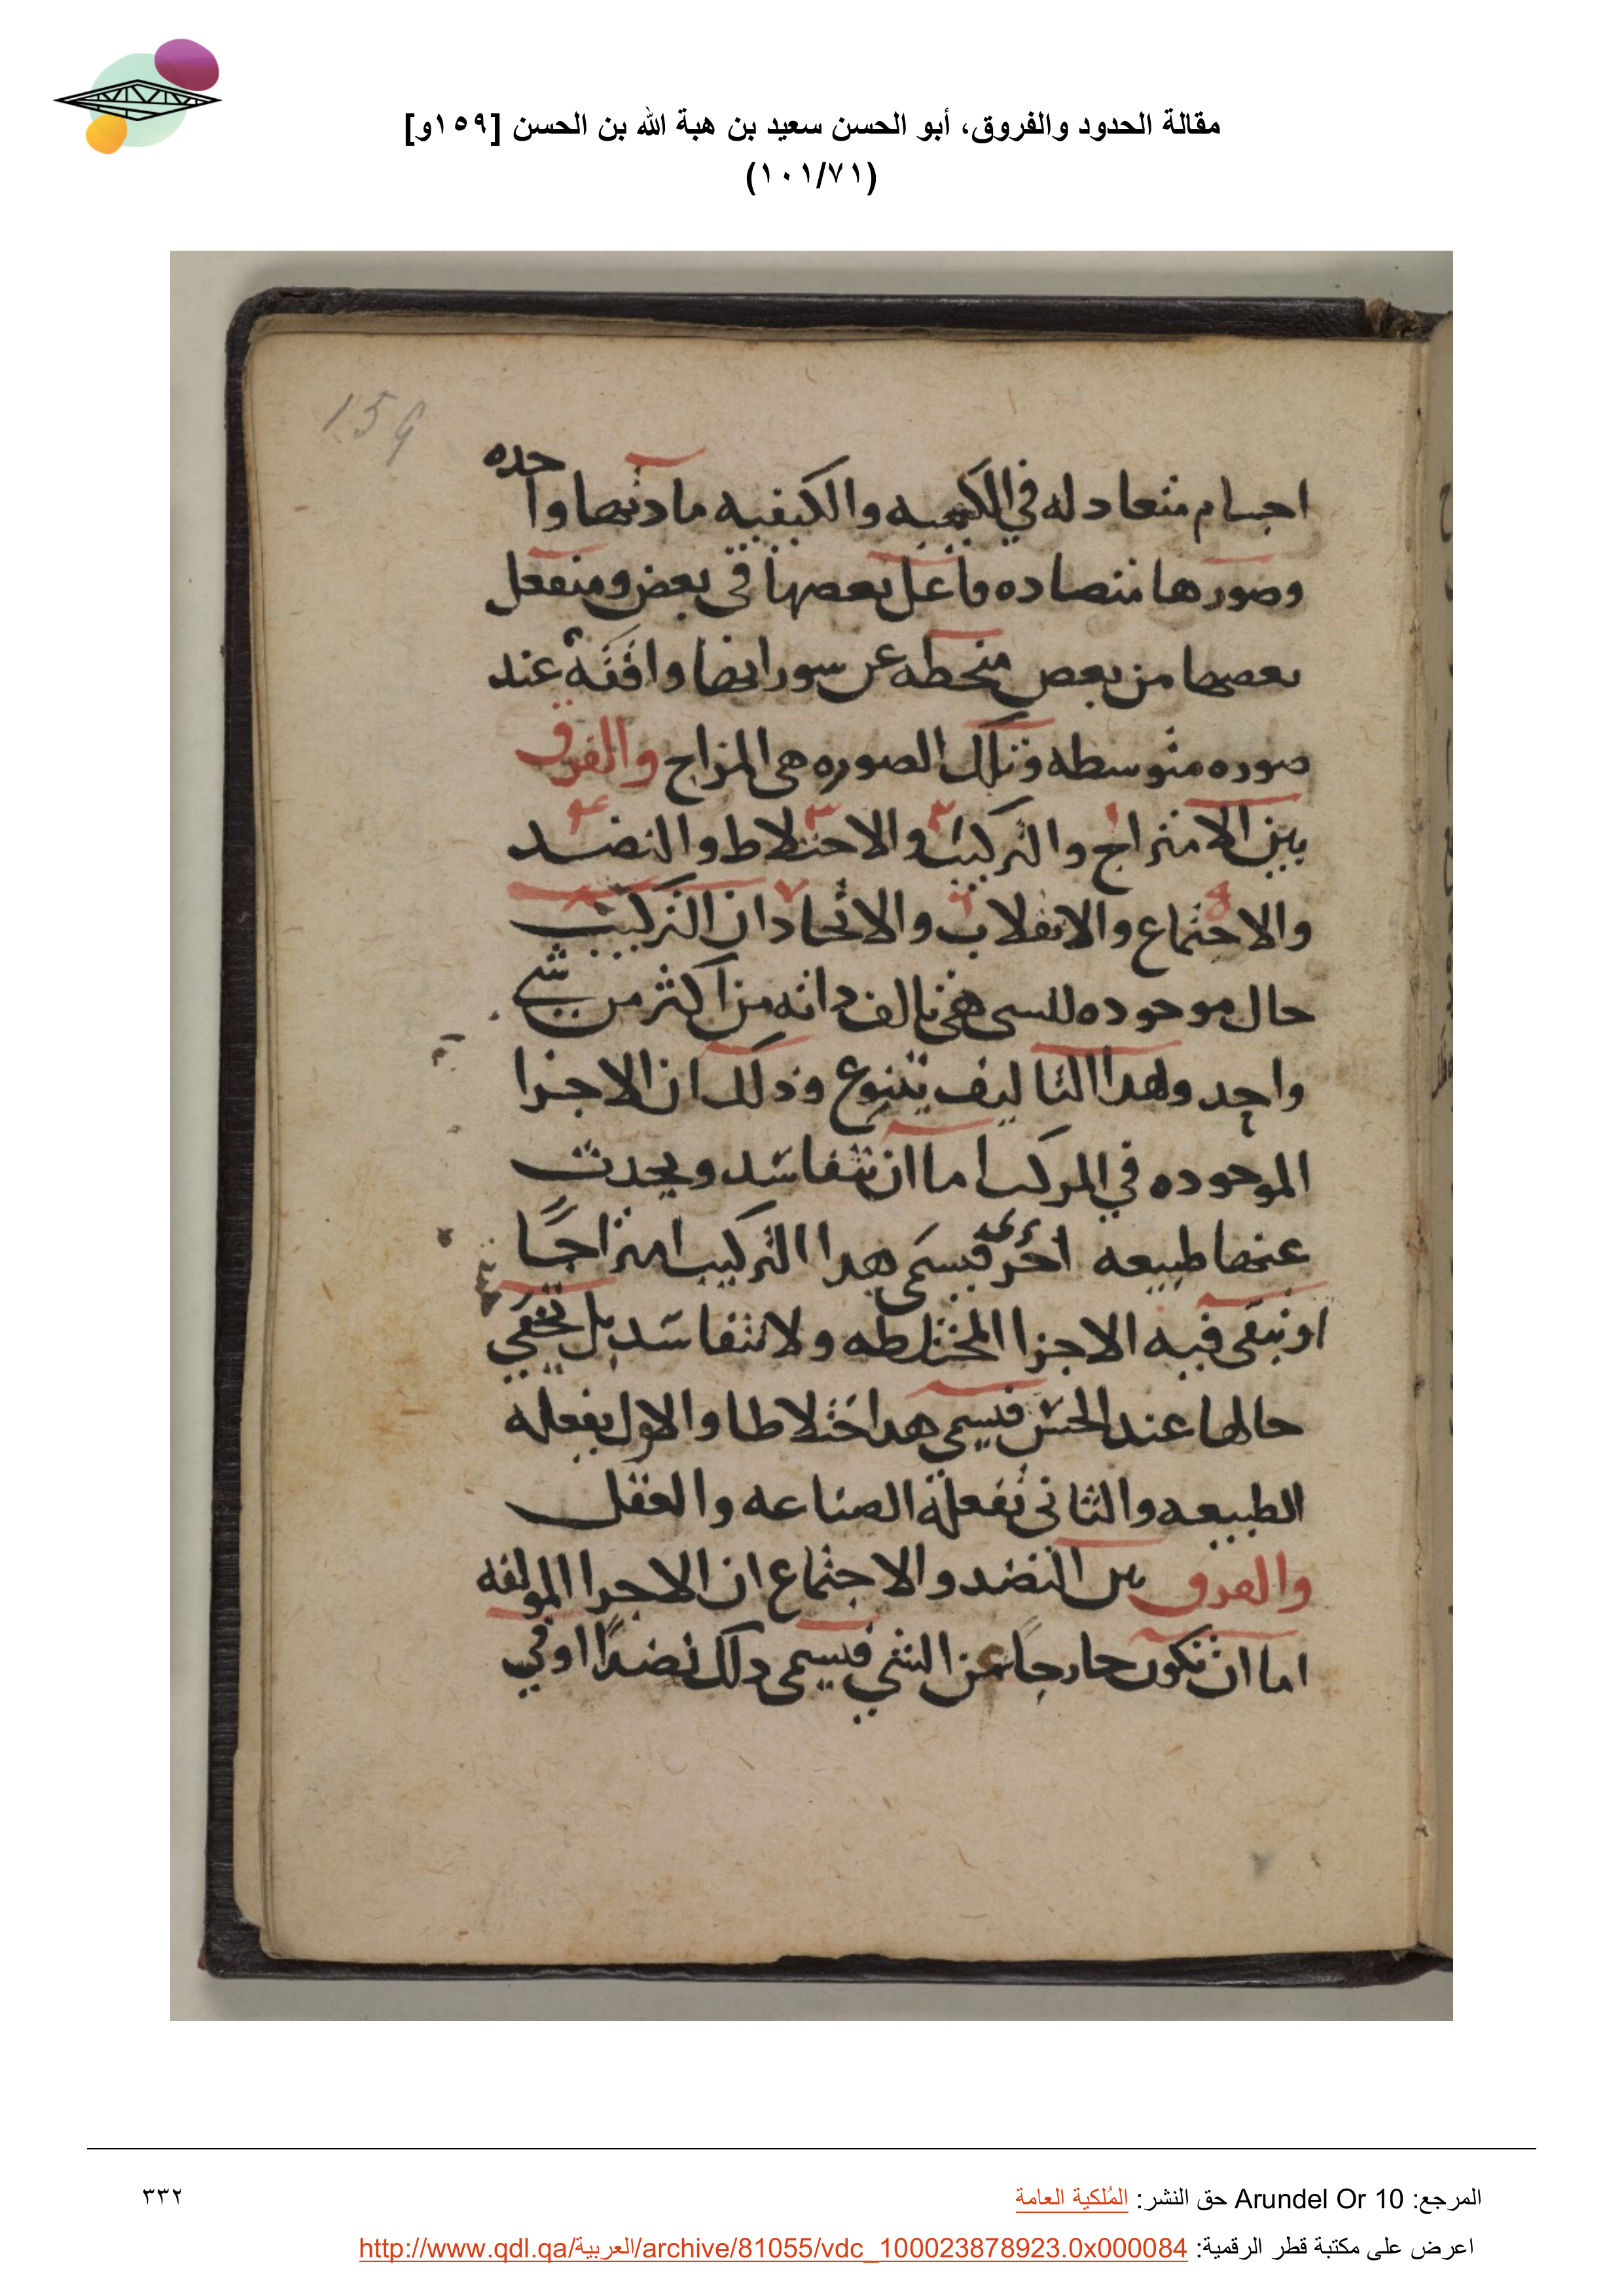 مقالة الحدود والفروق، أبو الحسن سعيد بن هبة الله بن الحسن [١٥٩و]
(١٠١/٧١)
159
اجسام متعادله في الكميه والكيفيه مادتها واحده
وصورها متضاده فاعل بعضها في بعض ومنفعل
بعضها من بعض منحطه عن سوراتها واقفة عند
صوره متوسطه وتلك الصوره هى المزاج والفرق
بين الامتزاج والتركيب والاختلاط والنضد
والاجتماع والانقلاب والاتحاد ان التركيب
حال موجوده للشى هى تالف ذاته من اكثر من شي
واحد وهذا التاليف يتنوع وذلك ان الاجزا
الموجوده في المركب اما ان تتفاسد ويحدث
عنها طبيعه اخرى فيسمى هذا التركيب امتزاجًا
او تبقى فيه الاجزا المختلطه ولا تتفاسد بل تخفي
حالها عند الحس فيسمى هذا اختلاطا والاول يفعله
الطبيعه والثانى تفعله الصناعه والعقل
والفرق بين النضد والاجتماع ان الاجزا المولفه
اما ان تكون خارجاً عن الشي فيسمى ذلك نضدًا او في
المرجع: Arundel Or 10 حق النشر: المُلكية العامة
٣٣٢
اعرض على مكتبة قطر الرقمية: http://www.qdl.qa/العربية/archive/81055/vdc_100023878923.0x000084